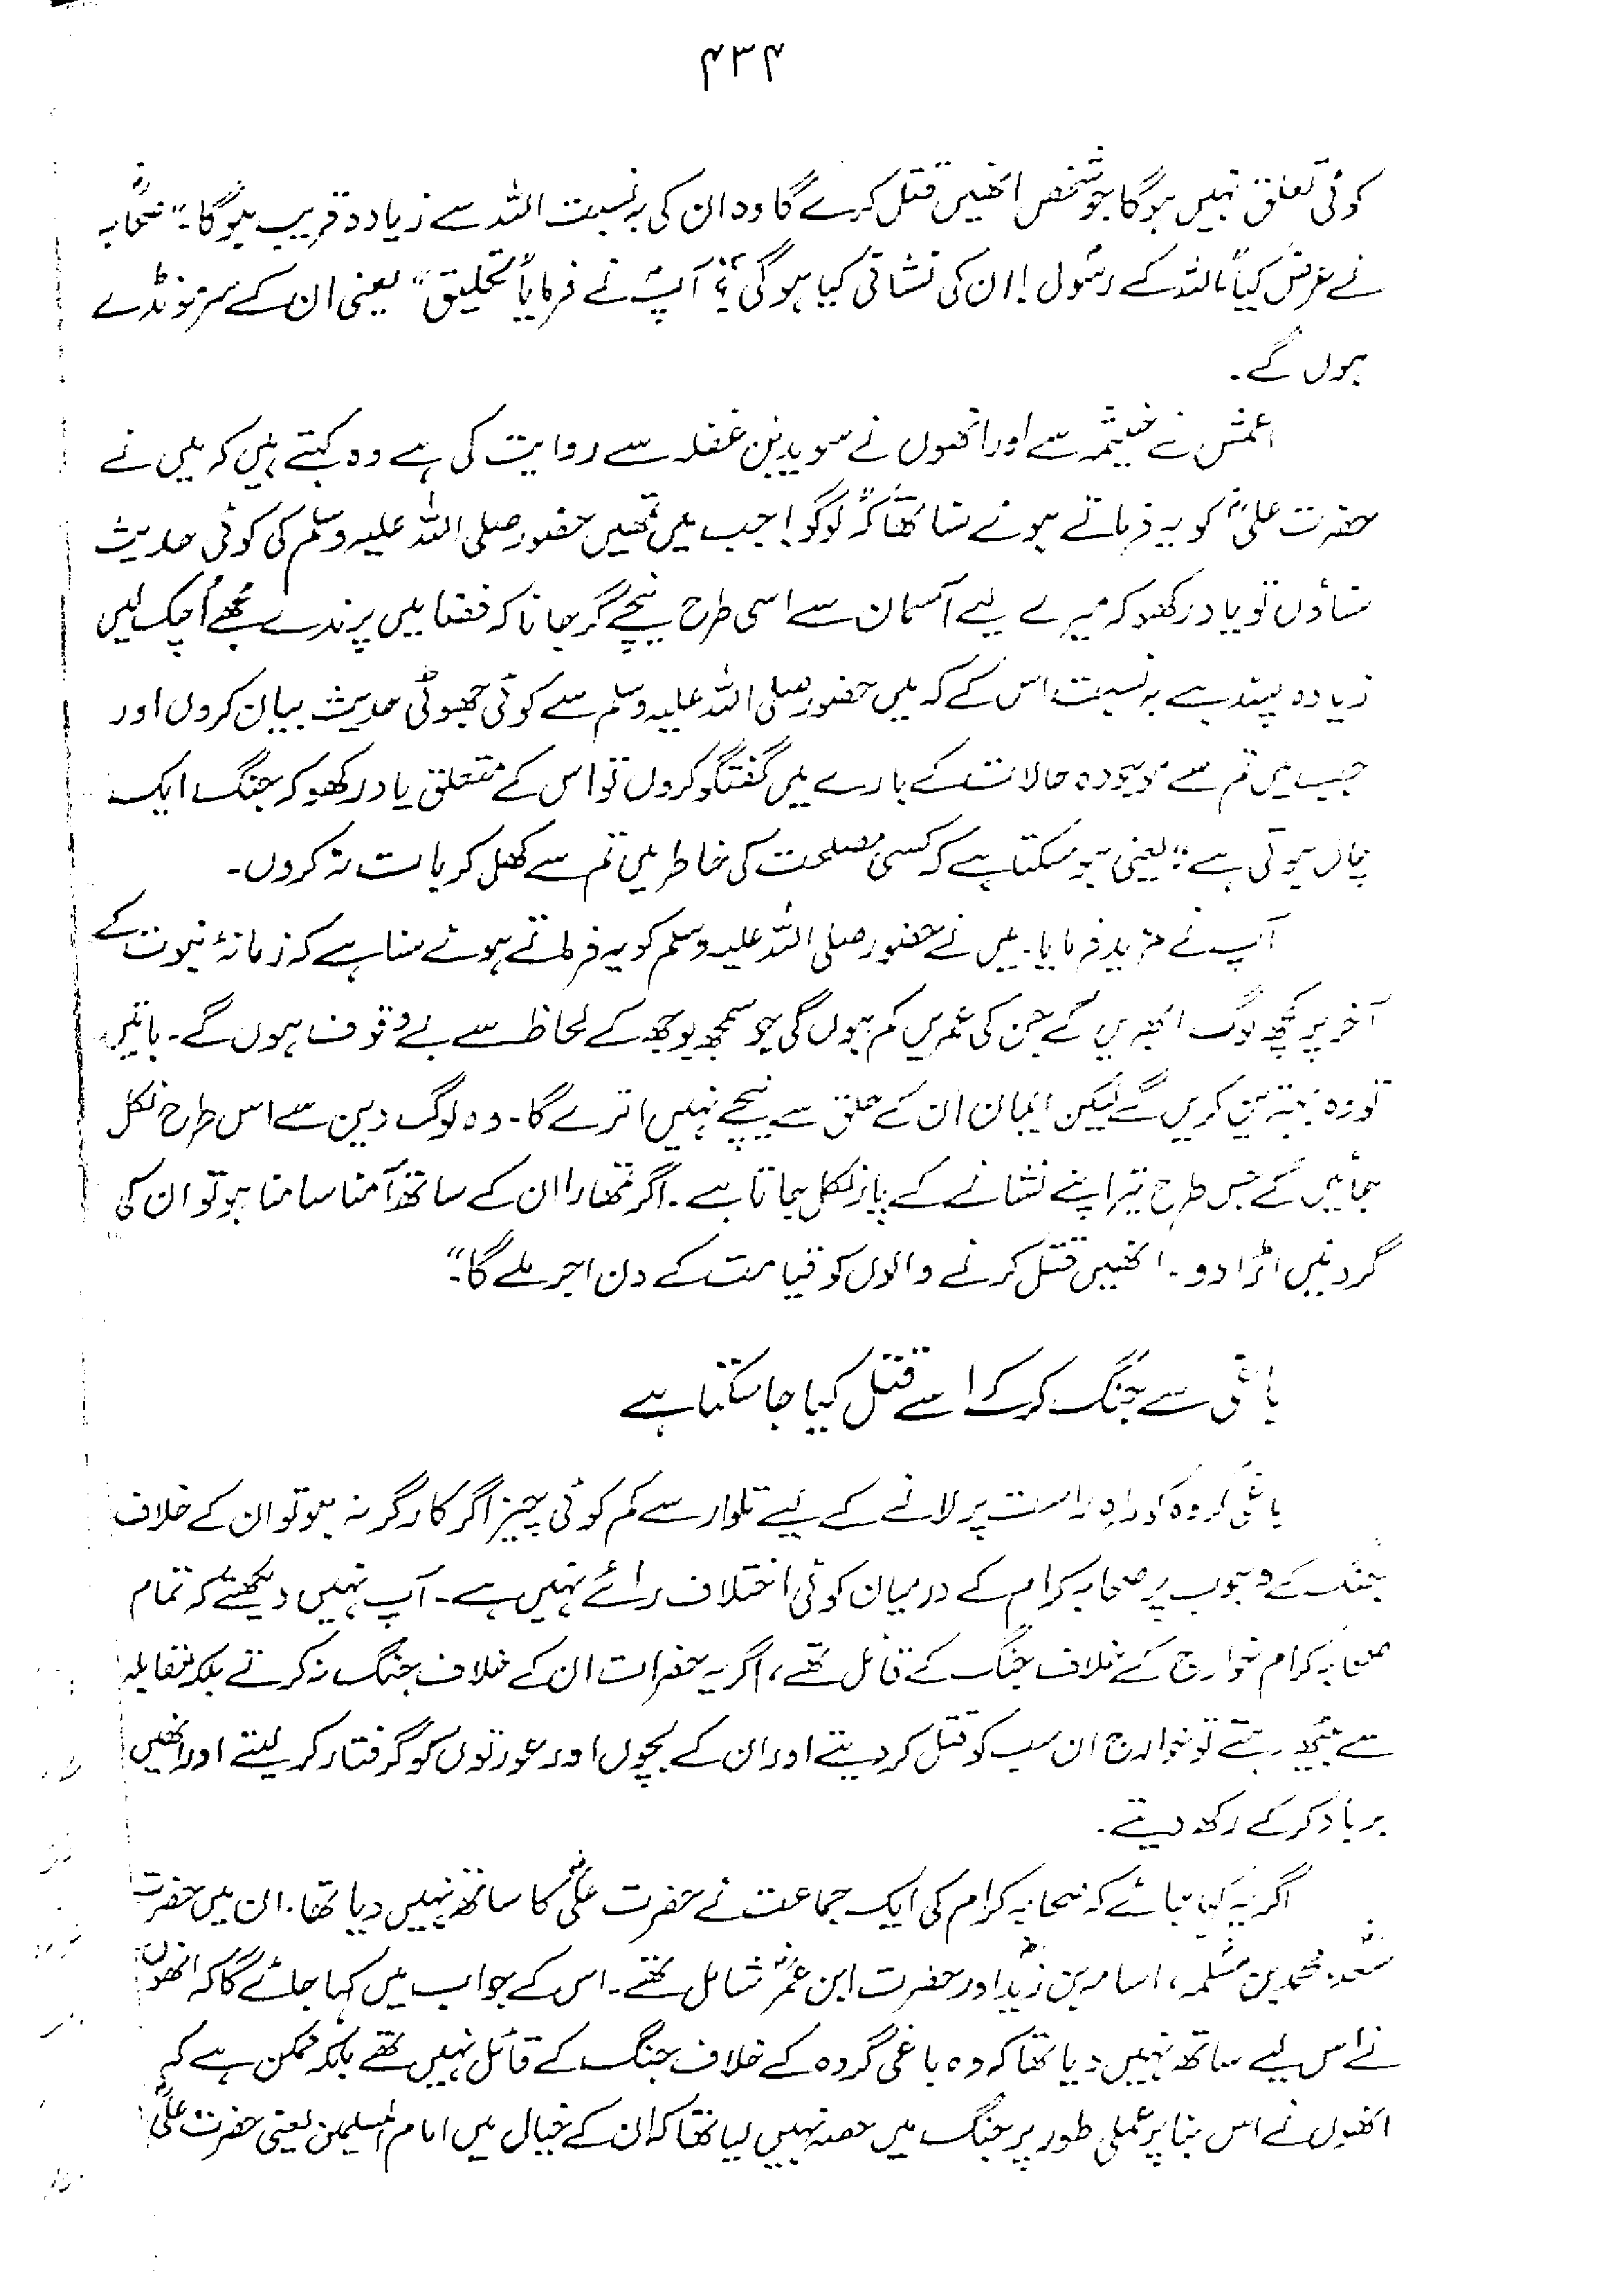 ۴۳۴
کوئی تعلق نہیں ہوگا جو شخص انھیں قتل کرے گا وہ ان کی بہ نسبت اللہ سے زیادہ قریب ہوگا۔" صحابہ
نے عرض کیا "اللہ کے رسول! ان کی نشانی کیا ہوگی؟" آپؐ نے فرمایا "تحلیق" یعنی ان کے سر مونڈے
ہوں گے۔
اعمش نے خیثمہ سے اور انھوں نے سوید بن غفلہ سے روایت کی ہے وہ کہتے ہیں کہ میں نے
حضرت علیؓ کو یہ فرماتے ہوئے سنا تھا کہ "لوگو! جب میں تمھیں حضور صلی اللہ علیہ وسلم کی کوئی حدیث
سناؤں تو یاد رکھو کہ میرے لیے آسمان سے اسی طرح نیچے گر جانا کہ فضا میں پرندے مجھے اُچک لیں
زیادہ پسند ہے بہ نسبت اس کے کہ میں حضور صلی اللہ علیہ وسلم سے کوئی جھوٹی حدیث بیان کروں اور
جب میں تم سے موجودہ حالات کے بارے میں گفتگو کروں تو اس کے متعلق یاد رکھو کہ جنگ ایک
چال ہوتی ہے" یعنی ہو سکتا ہے کہ کسی مصلحت کی خاطر میں تم سے کھل کر بات نہ کروں۔
آپ نے مزید فرمایا۔ میں نے حضور صلی اللہ علیہ وسلم کو یہ فرماتے ہوئے سنا ہے کہ زمانۂ نبوت کے
آخر پر کچھ لوگ ابھریں گے جن کی عمریں کم ہوں گی جو سمجھ بوجھ کے لحاظ سے بے وقوف ہوں گے۔ باتیں
تو وہ بہترین کریں گے لیکن ایمان ان کے حلق سے نیچے نہیں اترے گا۔ وہ لوگ دین سے اس طرح نکل
جائیں گے جس طرح تیر اپنے نشانے کے پار نکل جاتا ہے۔ اگر تمھارا ان کے ساتھ آمنا سامنا ہو تو ان کی
گردنیں اڑا دو۔ انھیں قتل کرنے والوں کو قیامت کے دن اجر ملے گا۔"
باغی سے جنگ کر کے اسے قتل کیا جا سکتا ہے
باغی گروہ کو راہ راست پر لانے کے لیے تلوار سے کم کوئی چیز اگر کارگر نہ ہو تو ان کے خلاف
جنگ کے وجوب پر صحابہ کرام کے درمیان کوئی اختلاف رائے نہیں ہے۔ آپ نہیں دیکھتے کہ تمام
صحابہ کرام خوارج کے خلاف جنگ کے قائل تھے، اگر یہ حضرات ان کے خلاف جنگ نہ کرتے بلکہ مقابلہ
سے بیٹھ رہتے تو خوارج ان سب کو قتل کر دیتے اور ان کے بچوں اور عورتوں کو گرفتار کر لیتے اور انھیں
برباد کر کے رکھ دیتے۔
اگر یہ کہا جائے کہ صحابہ کرام کی ایک جماعت نے حضرت علیؓ کا ساتھ نہیں دیا تھا۔ ان میں حضرت
سعدؓ، محمد بن مسلمہ، اسامہ بن زیدؓ اور حضرت ابن عمرؓ شامل تھے۔ اس کے جواب میں کہا جائے گا کہ انھوں
نے اس لیے ساتھ نہیں دیا تھا کہ وہ باغی گروہ کے خلاف جنگ کے قائل نہیں تھے بلکہ ممکن ہے کہ
انھوں نے اس بنا پر عملی طور پر جنگ میں حصہ نہیں لیا تھا کہ ان کے خیال میں امام المسلمین یعنی حضرت علیؓ